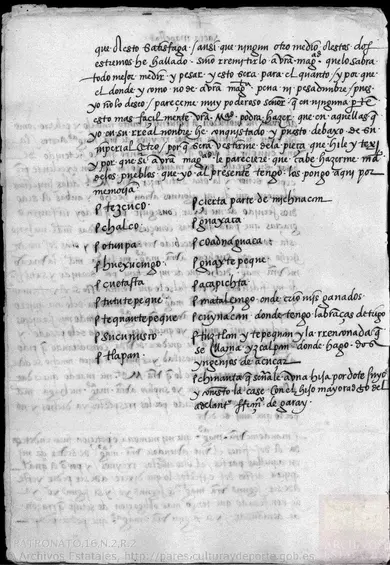 que a esto satisfaga / ansi que ningun otro medio destos dos
estremos he hallado. sino remitirlo a vra magt. que lo sabra
todo mejor medir y pesar. y esto sera para el quanto / y por que
el donde y como no de a vra magt. pena ni pesadumbre / pues
yo no lo deseo / pareçeme muy poderoso señor q en ninguna pte
esto mas façil mente vra. Mt. podra hazer. que en aquellas q
yo en su rreal nonbre he conquistado y puesto debaxo de su
imperial çetro / por q sera vestirme de la pieça que hile y texi
y por que si a vra magt le pareçiere que cabe hazerme md
de los pueblos que yo al presente tengo los pongo aqui por
memoria
p tezcuco.
p chalco.
p otunpa
p huexuçingo.
p cutasta
p tututepeque
p tequantepeque
p soconusco
p tlapan.
p çierta parte de michuacan
p guaxaca
p coadnaguaca
p guaxtepeque
p acapichta
p matalçingo. onde crio mis ganados
p cuynacan donde tengo labrãças de trigo
p tuztlan y tepequan y la rrenconada q
se llama yzcalpan donde hago dos
yngenios de açucar
p chinanta q señale a una hija por dote suyo
y con esto la case con el hijo mayoradgo del
adelantº. ffrcº de garay.
PATRONATO,16,N.2,R.2
Archivos Estatales, http://pares.culturaydeporte.gob.es